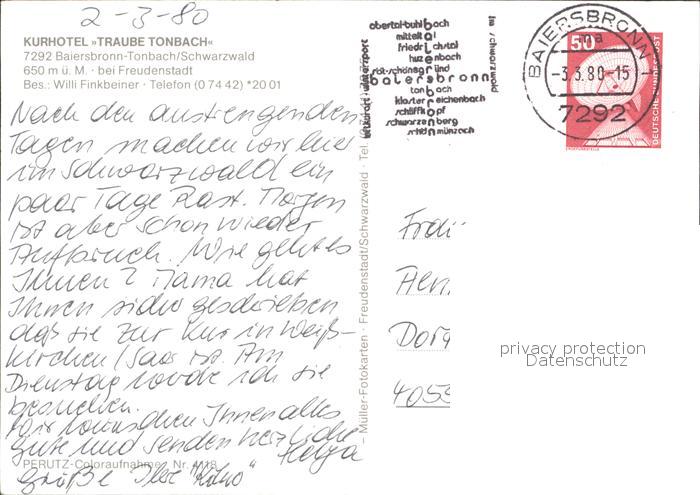 2-3-80
KURHOTEL »TRAUBE TONBACH«
7292 Baiersbronn-Tonbach/Schwarzwald
650 m ü. M. · bei Freudenstadt
Bes.: Willi Finkbeiner · Telefon (0 74 42) *20 01
Nach den anstrengenden
Tagen machen wir hier
im Schwarzwald ein
paar Tage Rast. Morgen
ist aber schon wieder
Aufbruch. Wie geht es
Ihnen? Mama hat
Ihnen sicher geschrieben
daß sie zur Kur in Weiß-
kirchen/Saar ist. Am
Dienstag werde ich sie
besuchen.
Wir wünschen Ihnen alles
Gute und senden herzliche
Grüße Ihre Helga
PERUTZ-Coloraufnahme Nr. 4118
Müller-Fotokarten · Freudenstadt/Schwarzwald · Tel.
obertal-buhlbach
mitteltal
friedrichstal
huzenbach
röt-schönegründ
baiersbronn
tonbach
klosterreichenbach
schliffkopf
schwarzenberg
schönmünzach
luftkurort·wintersport
im schwarzwald
BAIERSBRONN
ma
-3.3.80-15
7292
50
DEUTSCHE BUNDESPOST
ERDEFUNKSTELLE
Frau
Hen
Dorg
4053
privacy protection
Datenschutz